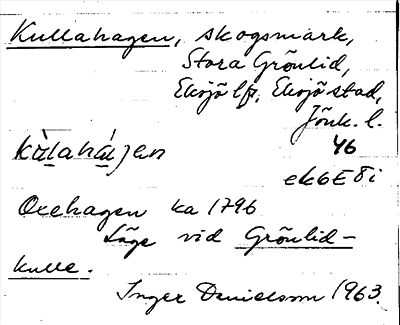 Kullahagen, skogsmark,
Stora Grönlid,
Eksjö lfs, Eksjö stad,
Jönk. l.
46
ek6E8i
Oxehagen ka 1796
Läge vid Grönlid-
kulle.
Inger Danielsson 1963.